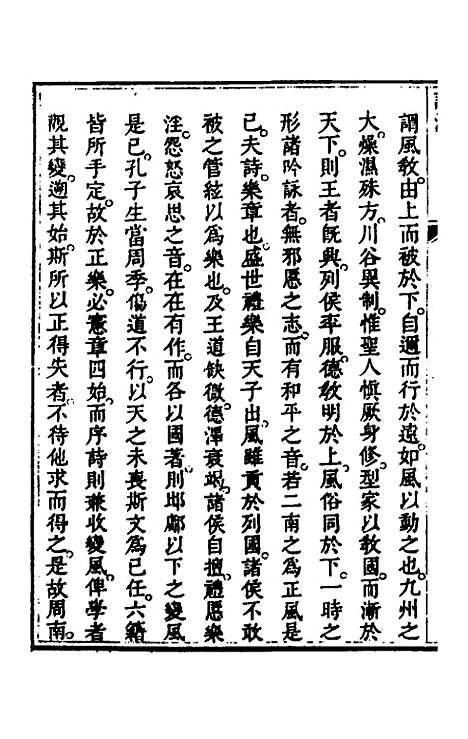 謂風敎由上而被於下。自邇而行於遠。如風以動之也。九州之
大。燥濕殊方。川谷異制。惟聖人愼厥身修。型家以敎國。而漸於
天下。則王者旣興。列侯率服。德敎明於上。風俗同於下。一時之
形諸吟詠者。無邪慝之志。而有和平之音。若二南之爲正風是
已。夫詩。樂章也。盛世禮樂。自天子出。風雖貢於列國。諸侯不敢
被之管絃以爲樂也。及王道缺微。德澤衰竭。諸侯自擅。禮慝樂
淫。怨怒哀思之音。在在有作。而各以國著。則邶鄘以下之變風
是已。孔子生當周季。傷道不行。以天之未喪斯文爲已任。六籍
皆所手定。故於正樂。必憲章四始。而序詩則兼收變風。俾學者
觀其變。遡其始。斯所以正得失者。不待他求而得之。是故周南。